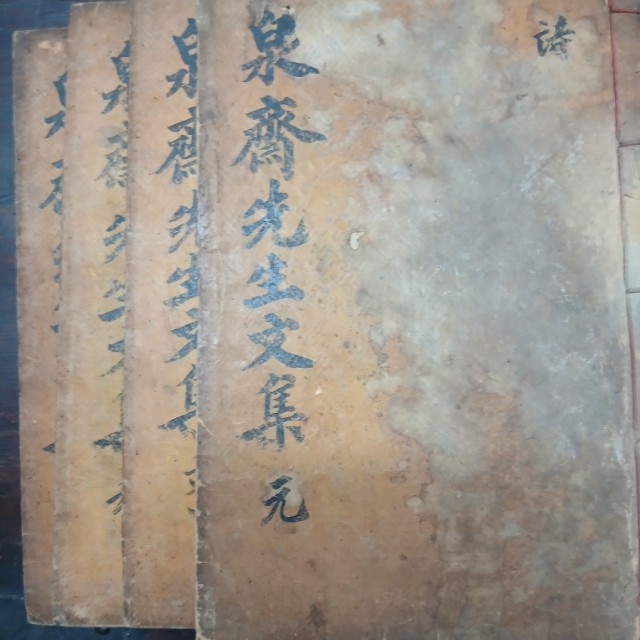 詩
泉齋先生文集 元
泉齋先生文集
泉齋先生文集
泉齋